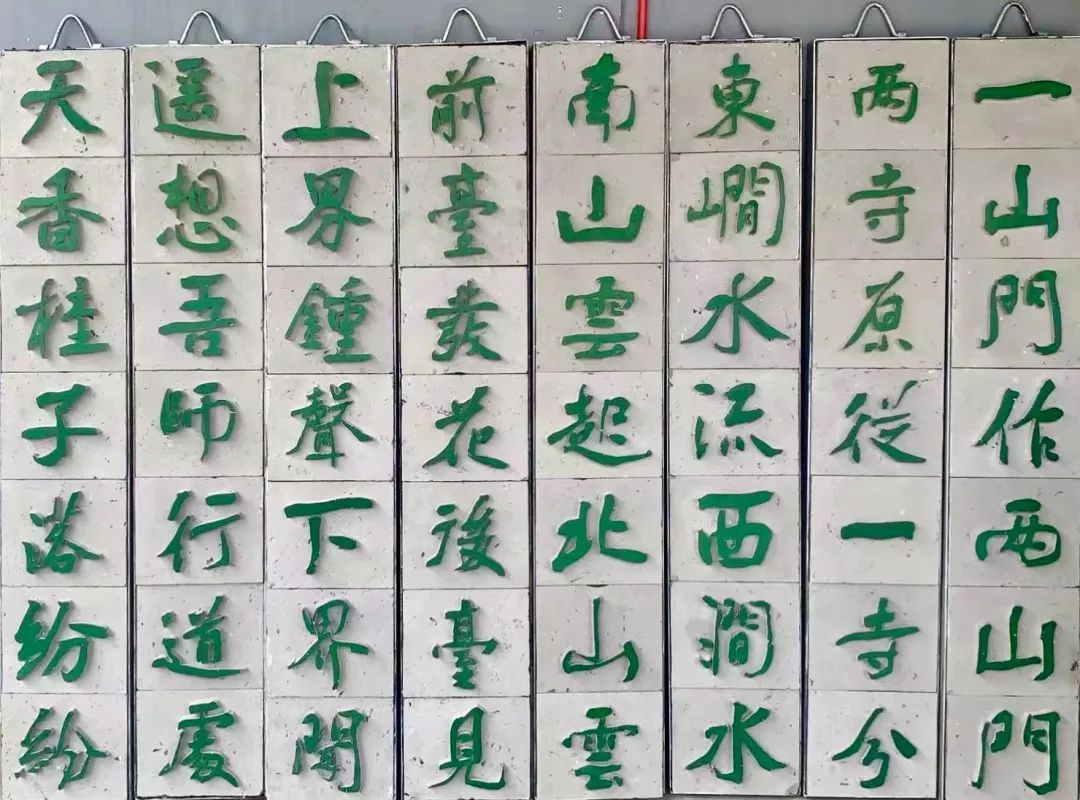 一山門作两山門
两寺原從一寺分
東嶹水流西澗水
南山雲起北山雲
前臺發花後臺見
上界鍾聲下界聞
遥想吾師行道處
天香桂子落紛紛